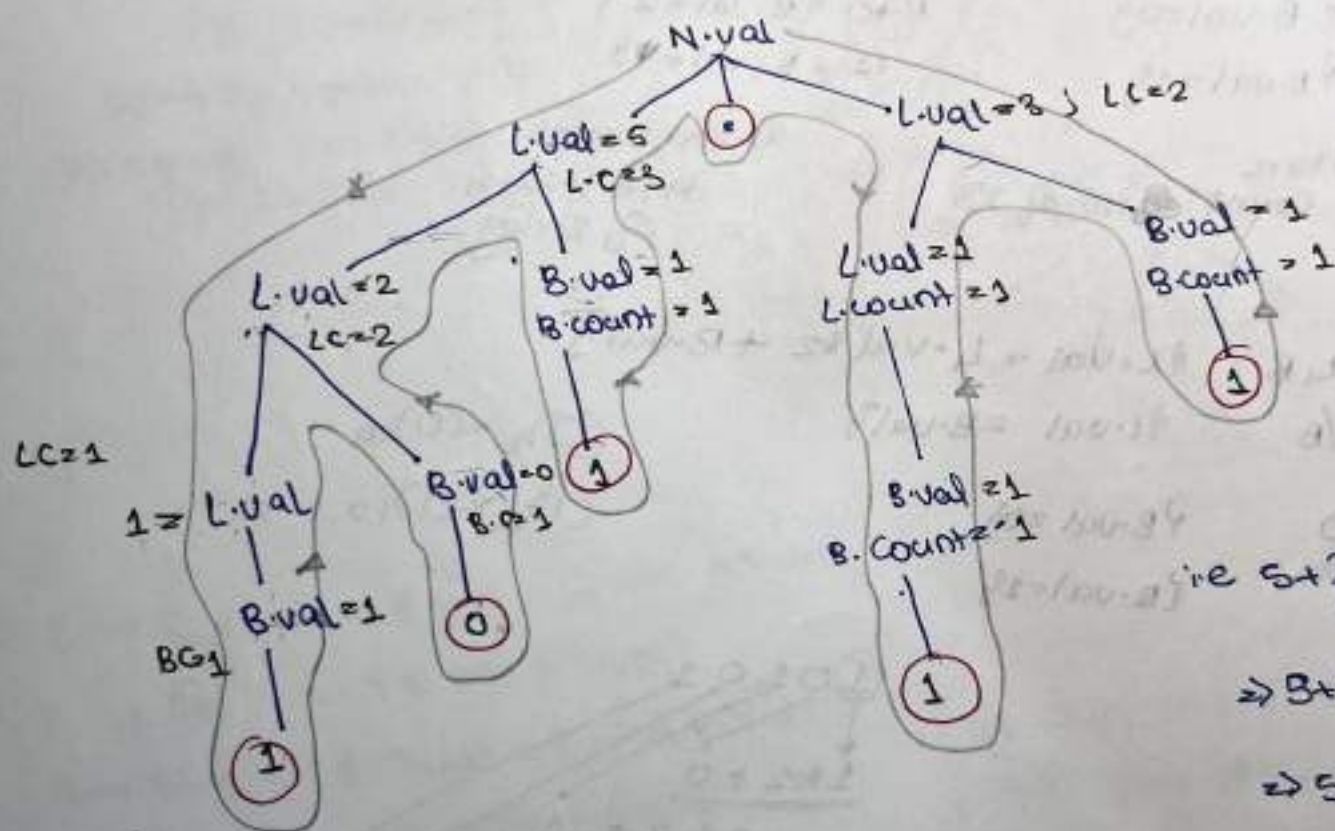 N.val
L.val=5
L.C=3
L.val=3 ; LC=2
L.val=2
LC=2
B.val=1
B.count=1
L.val=1
L.count=1
B.val=1
B.count=1
1
LC=1
1= L.val
B.val=0
B.C=1
1
B.val=1
B.count=1
B.val=1
BC=1
0
1
1
i.e 5+
=> 5+
=> 5